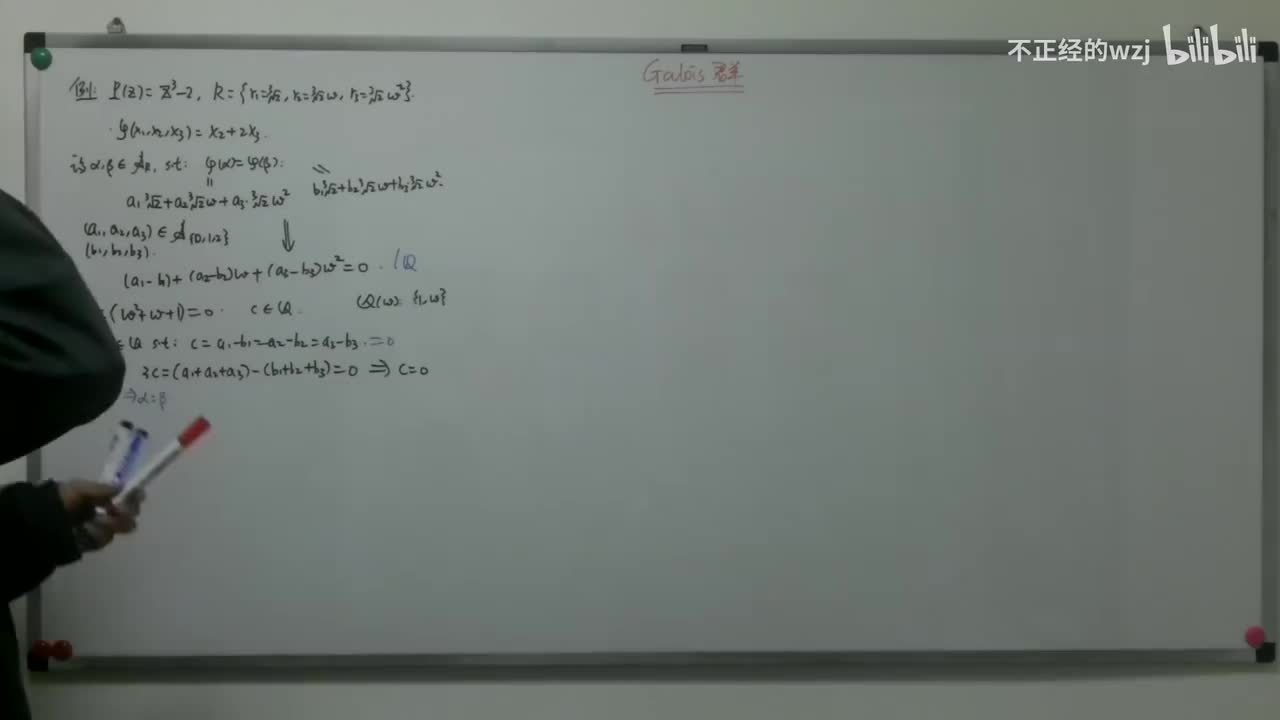 不正经的wzj bilibili
Galois 群
例: P(z)=z³-2, R={r₁=∛2, r₂=∛2ω, r₃=∛2ω²}.
φ(x₁,x₂,x₃)=x₂+2x₃.
设 α,β∈A_R, s.t: φ(α)=φ(β).
a₁∛2+a₂∛2ω+a₃·∛2ω² b₁∛2+b₂∛2ω+b₃∛2ω².
(a₁,a₂,a₃)∈A{0,1,2}
(b₁,b₂,b₃).
(a₁-b₁)+(a₂-b₂)ω+(a₃-b₃)ω²=0. /Q
(ω²+ω+1)=0. c∈Q. Q(ω): {1,ω}
∈Q s.t: c=a₁-b₁=a₂-b₂=a₃-b₃.=0
3c=(a₁+a₂+a₃)-(b₁+b₂+b₃)=0 ⇒ c=0
⇒α=β